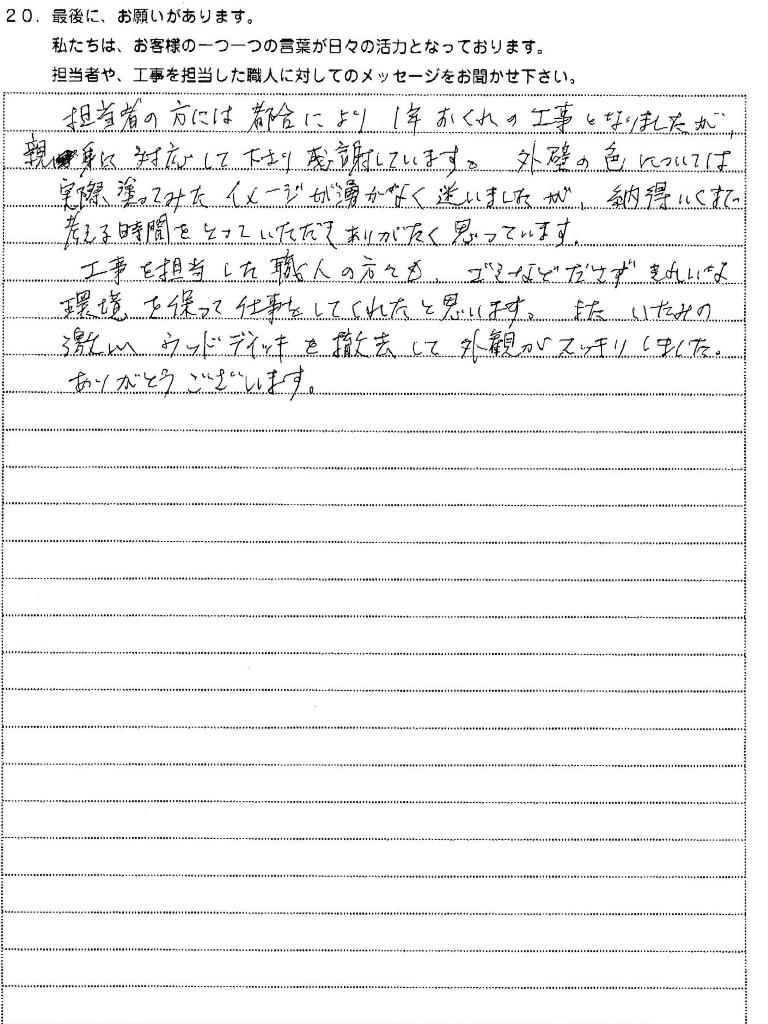 20. 最後に、お願いがあります。
私たちは、お客様の一つ一つの言葉が日々の活力となっております。
担当者や、工事を担当した職人に対してのメッセージをお聞かせ下さい。
担当者の方には都合により1年おくれの工事となりましたが、
親身に対応して下さり感謝しています。外壁の色については
実際、塗ってみたイメージが湧かなく迷いましたが、納得いくまで
考える時間をとっていただきありがたく思っています。
工事を担当した職人の方々も、ゴミなどださずきれいな
環境を保って仕事をしてくれたと思います。また いたみの
激しいウッドデイッキを撤去して外観がスッキリしました。
ありがとうございます。